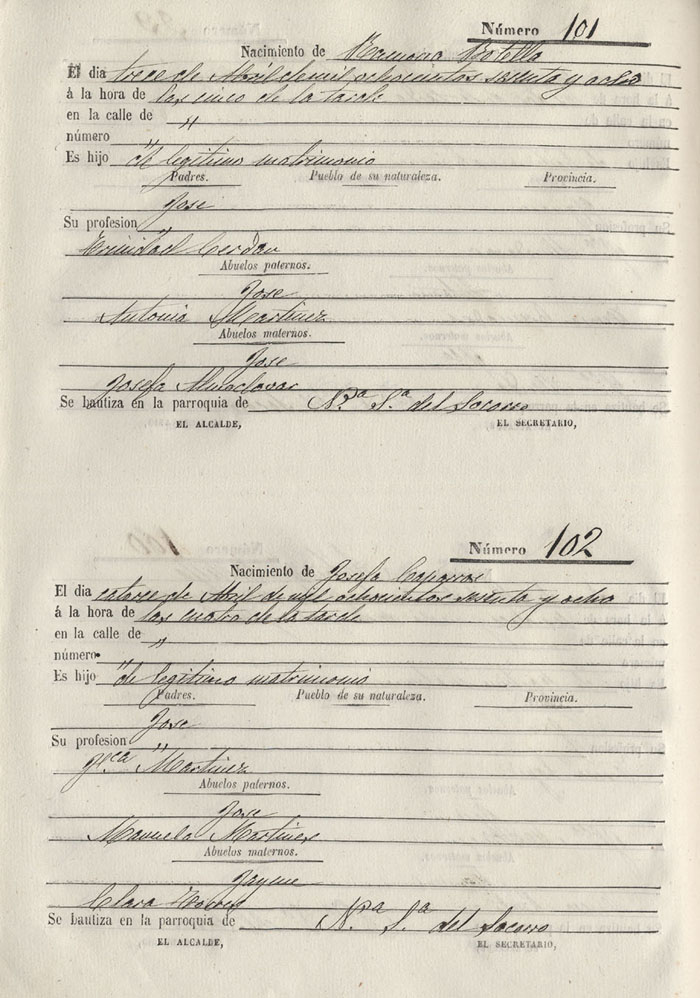 Número 101
Nacimiento de Ramona Botella
El dia trece de Abril de mil ochocientos sesenta y ocho
á la hora de las cinco de la tarde
en la calle de "
número "
Es hijo de legitimo matrimonio
Padres. Pueblo de su naturaleza. Provincia.
Jose
Su profesion "
Trinidad Cerdan
Abuelos paternos.
Jose
Antonia Martinez
Abuelos maternos.
Jose
Josefa
Se bautiza en la parroquia de N.ª S.ª del Socorro
EL ALCALDE, EL SECRETARIO,
Número 102
Nacimiento de Josefa
El dia catorce de Abril de mil ochocientos sesenta y ocho
á la hora de las cuatro de la tarde
en la calle de "
número "
Es hijo de legitimo matrimonio
Padres. Pueblo de su naturaleza. Provincia.
Jose
Su profesion "
Fr.ca Martinez
Abuelos paternos.
Jose
Manuela Martinez
Abuelos maternos.
Jayme
Clara
Se bautiza en la parroquia de N.ª S.ª del Socorro
EL ALCALDE, EL SECRETARIO,